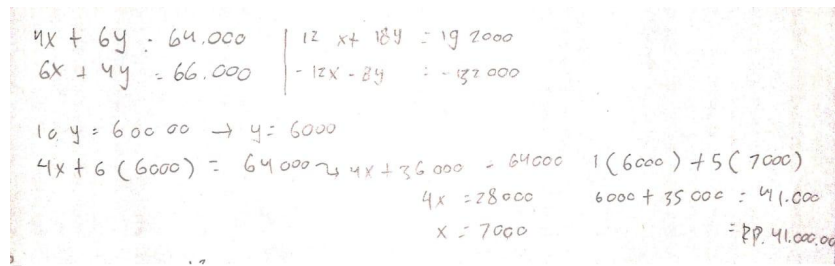 4x + 6y = 64.000 | 12 x + 18y = 192000
6x + 4y = 66.000 | - 12x - 8y = - 132 000
10 y = 600 00 → y = 6000
4x + 6 (6000) = 64000 → 4x + 36 000 = 64000
4x = 28000
x = 7000
1 (6000) + 5 (7000)
6000 + 35 000 = 41.000
= Rp. 41.000.00